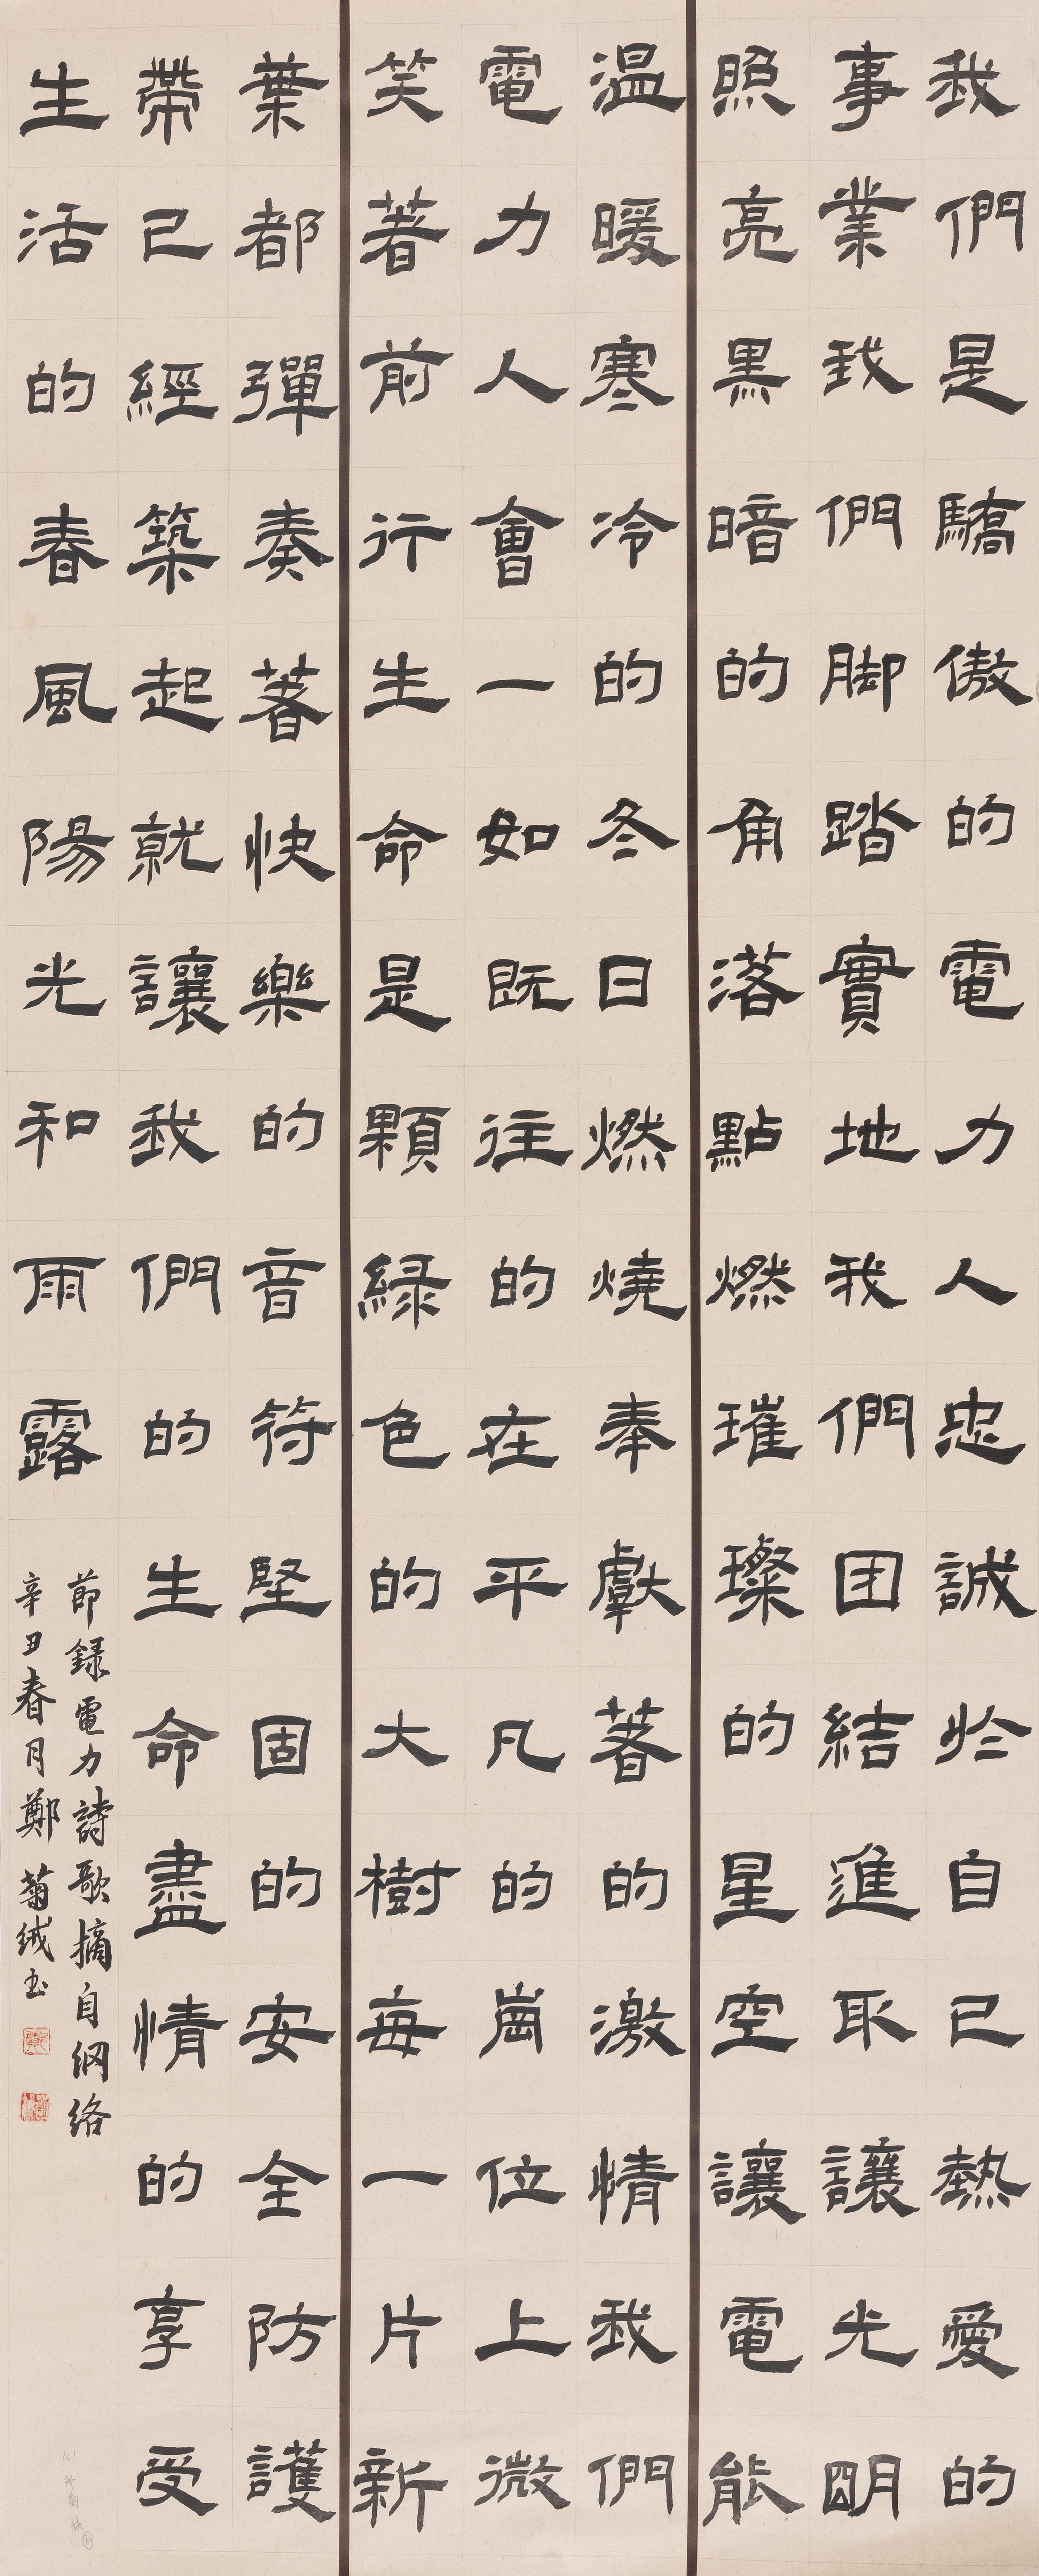 我們是驕傲的電力人忠誠於自己熱愛的
事業我們脚踏實地我們团結進取讓光明
照亮黑暗的角落點燃璀璨的星空讓電能
温暖寒冷的冬日燃燒奉獻著的激情我們
電力人會一如既往的在平凡的崗位上微
笑著前行生命是顆緑色的大樹每一片新
葉都彈奏著快樂的音符堅固的安全防護
帶已經築起就讓我們的生命盡情的享受
生活的春風陽光和雨露
節録電力詩歌摘自網络
辛丑春月鄭菊绒书